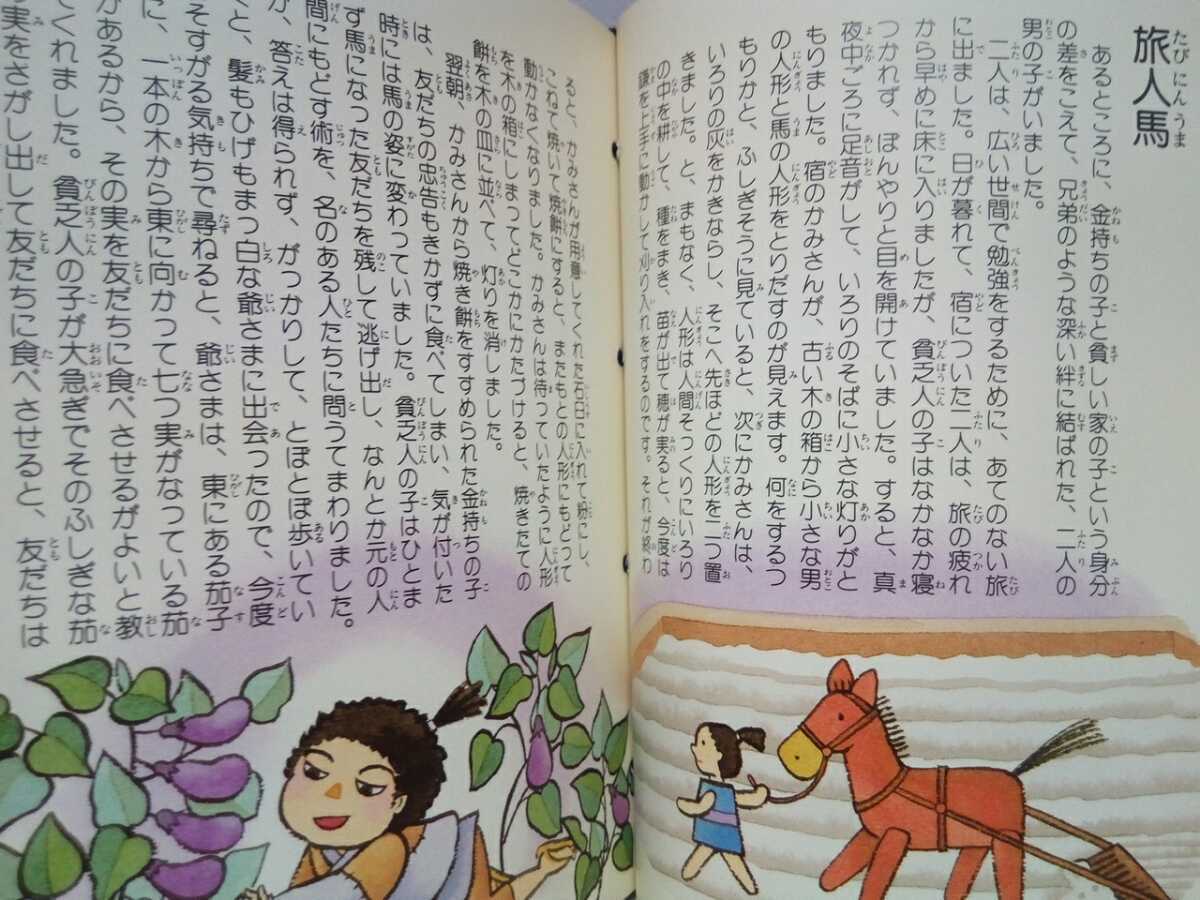 旅人馬
あるところに、金持ちの子と貧しい家の子という身分
の差をこえて、兄弟のような深い絆に結ばれた、二人の
男の子がいました。
二人は、広い世間で勉強をするために、あてのない旅
に出ました。日が暮れて、宿についた二人は、旅の疲れ
から早めに床に入りましたが、貧乏人の子はなかなか寝
つかれず、ぼんやりと目を開けていました。すると、真
夜中ごろに足音がして、いろりのそばに小さな灯りがと
もりました。宿のかみさんが、古い木の箱から小さな男
の人形と馬の人形をとりだすのが見えます。何をするつ
もりかと、ふしぎそうに見ていると、次にかみさんは、
いろりの灰をかきならし、そこへ先ほどの人形を二つ置
きました。と、まもなく、人形は人間そっくりにいろり
の中を耕して、種をまき、苗が出て穂が実ると、今度は
鎌を上手に動かして刈り入れをするのです。それが終わ
ると、かみさんが用意してくれた石臼に入れて粉にし、
こねて焼いて焼餅にすると、またもとの人形にもどって
動かなくなりました。かみさんは待っていたように人形
を木の箱にしまってどこかにかたづけると、焼きたての
餅を木の皿に並べて、灯りを消しました。
翌朝、かみさんから焼き餅をすすめられた金持ちの子
は、友だちの忠告もきかずに食べてしまい、気が付いた
時には馬の姿に変わっていました。貧乏人の子はひとま
ず馬になった友だちを残して逃げ出し、なんとか元の人
間にもどす術を、名のある人たちに問うてまわりました。
が、答えは得られず、がっかりして、とぼとぼ歩いてい
くと、髪もひげもまっ白な爺さまに出会ったので、今度
こそすがる気持ちで尋ねると、爺さまは、東にある茄子
に、一本の木から東に向かって七つ実がなっている茄
があるから、その実を友だちに食べさせるがよいと教
てくれました。貧乏人の子が大急ぎでそのふしぎな茄
の実をさがし出して友だちに食べさせると、友だちは